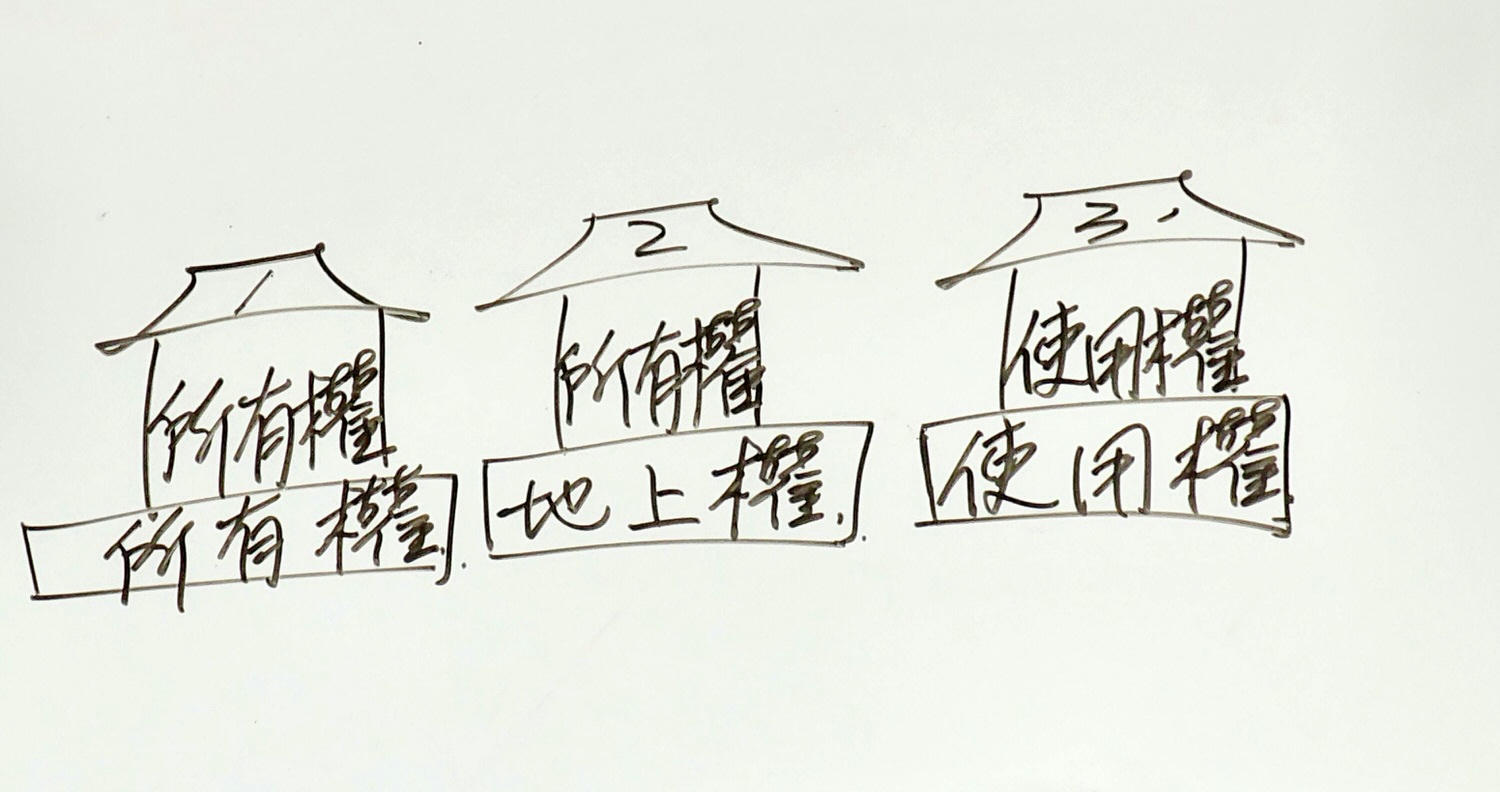 1
所有權
所有權.
2
所有權
地上權.
3.
使用權
使用權.